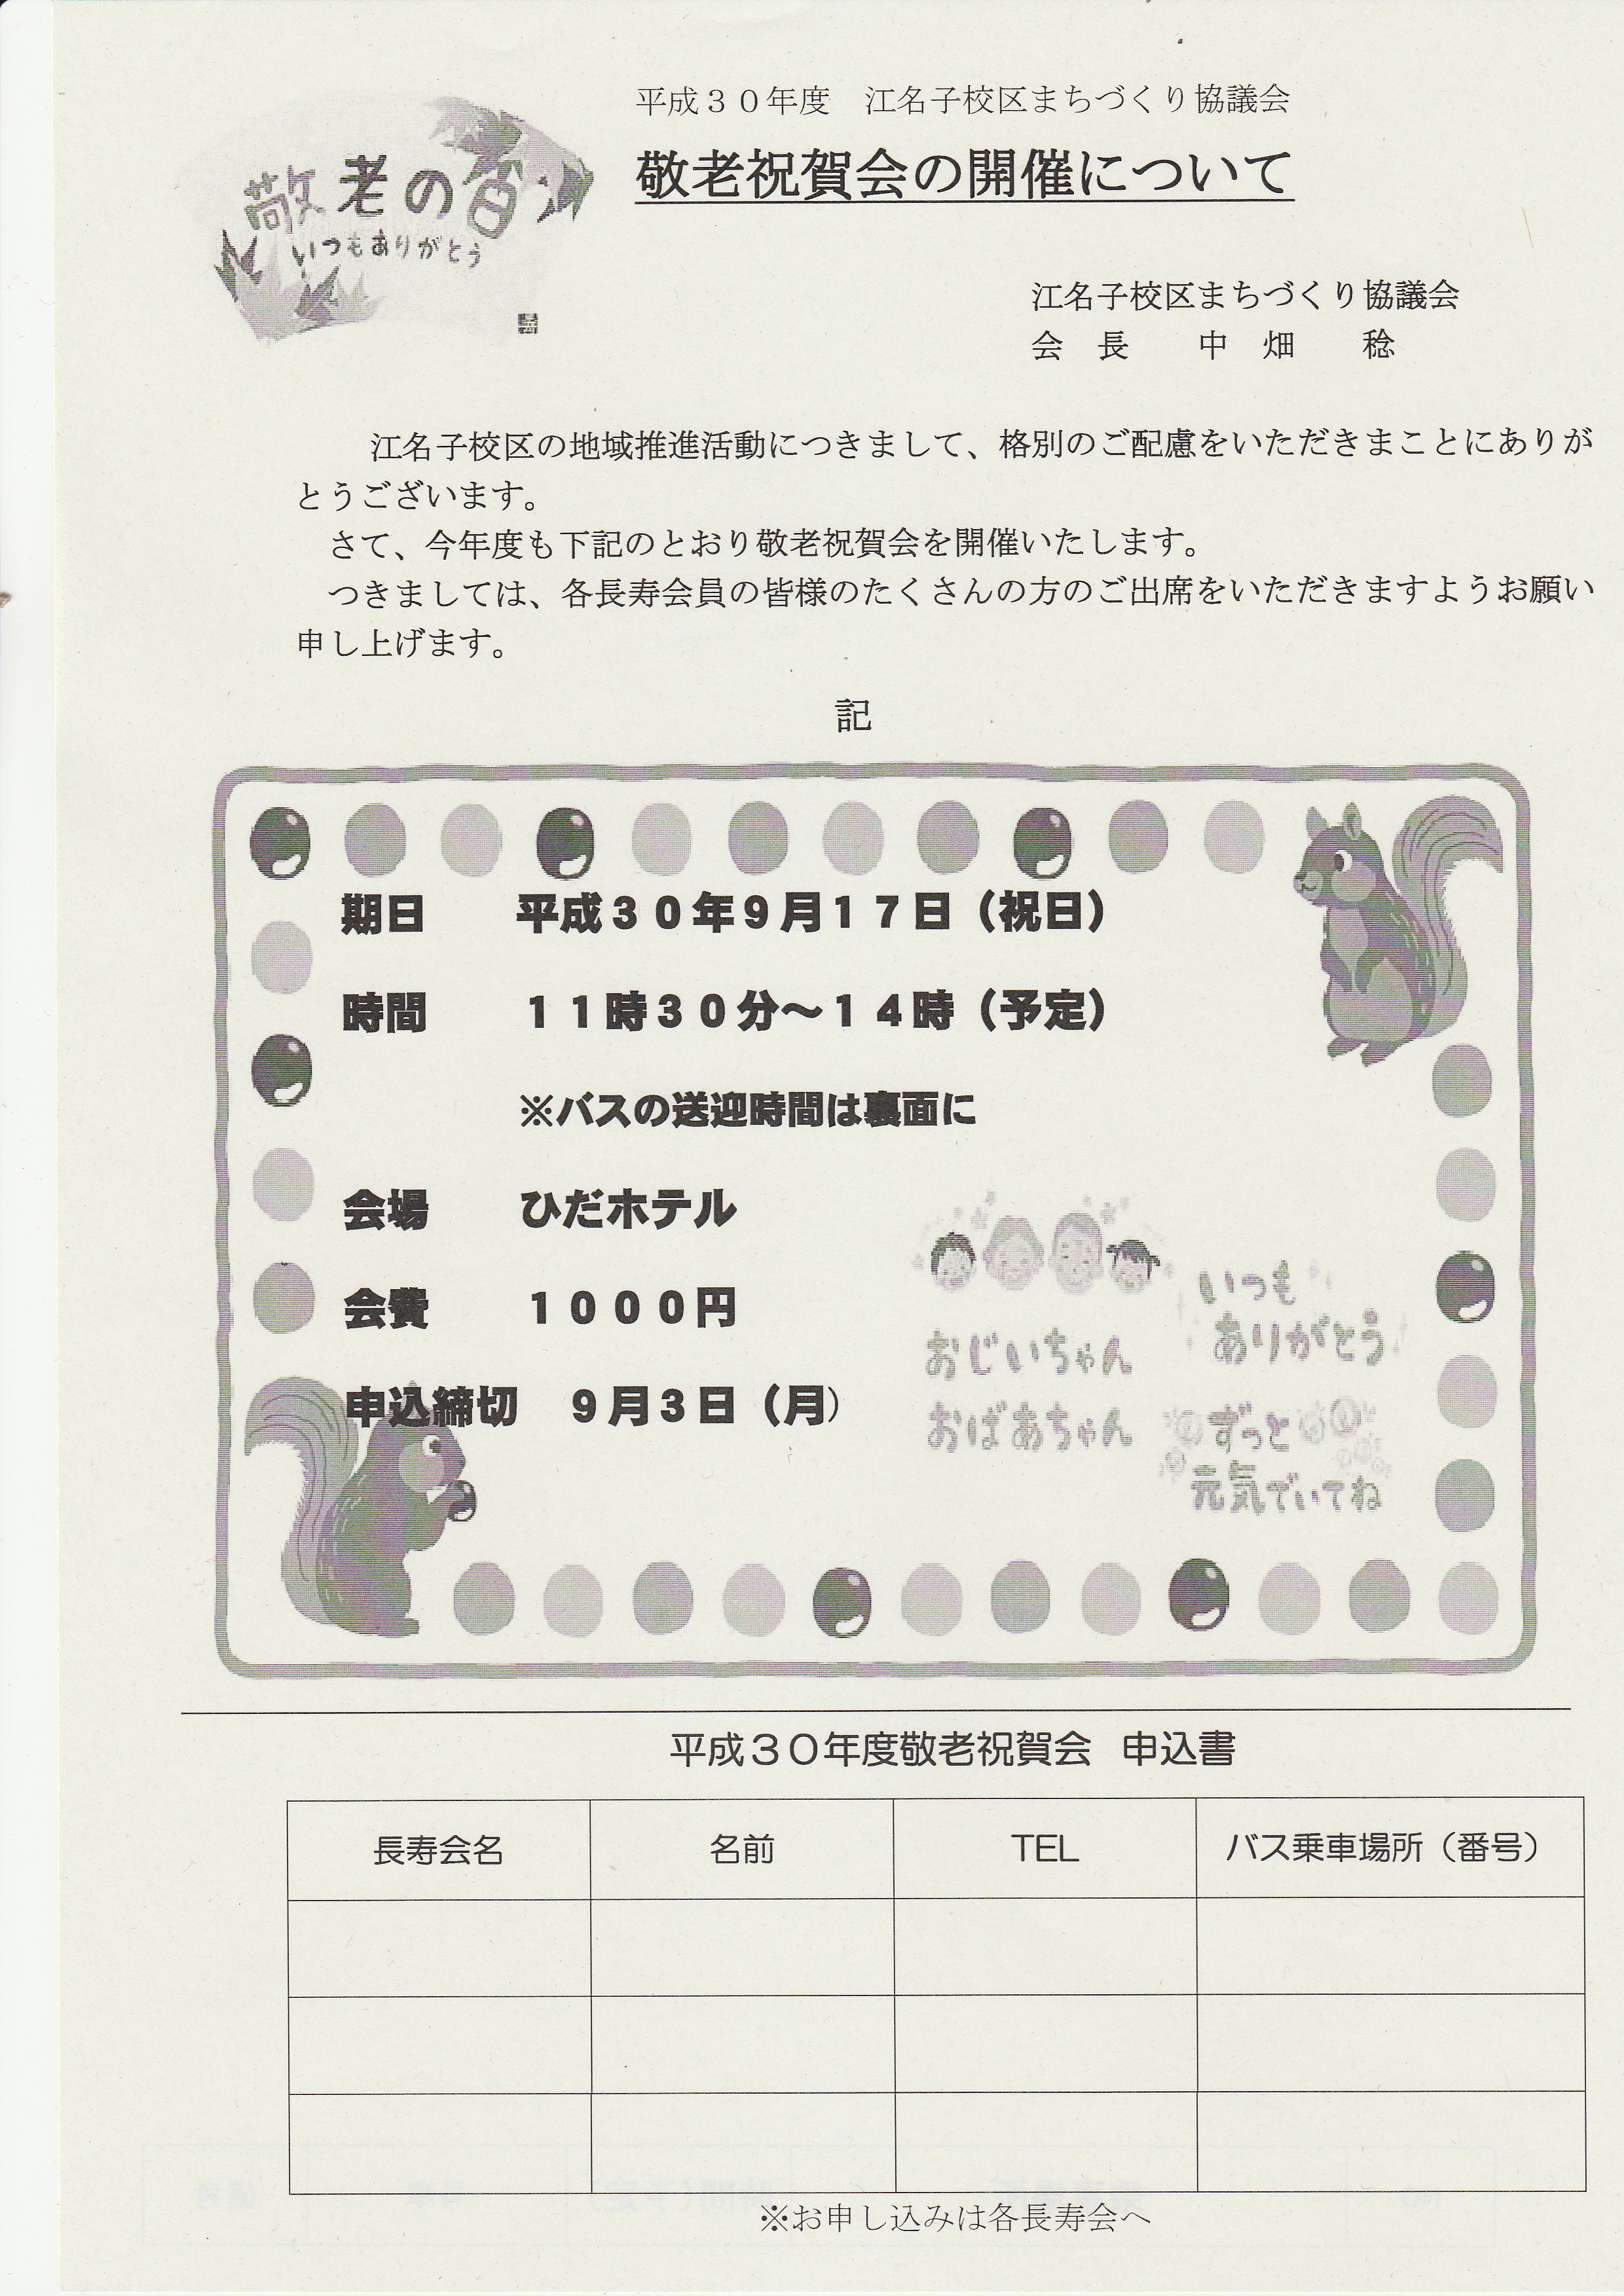 敬老の日
いつもありがとう
平成３０年度　江名子校区まちづくり協議会
敬老祝賀会の開催について
江名子校区まちづくり協議会
会　長　　中　畑　　稔
江名子校区の地域推進活動につきまして、格別のご配慮をいただきまことにありが
とうございます。
さて、今年度も下記のとおり敬老祝賀会を開催いたします。
つきましては、各長寿会員の皆様のたくさんの方のご出席をいただきますようお願い
申し上げます。
記
期日　　平成３０年９月１７日（祝日）
時間　　１１時３０分～１４時（予定）
※バスの送迎時間は裏面に
会場　　ひだホテル
会費　　１０００円
申込締切　９月３日（月）
おじいちゃん
おばあちゃん
いつも
ありがとう
ずっと
元気でいてね
平成３０年度敬老祝賀会　申込書
長寿会名　名前　TEL　バス乗車場所（番号）
※お申し込みは各長寿会へ